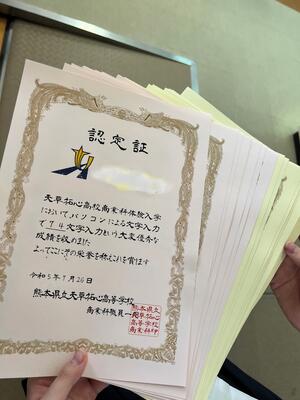 認定証
天草拓心高校商業科体験入学
において、パソコンによる文字入力
で74文字入力という大変優秀な
成績を收めました
よってここにその栄誉を称えこれを賞します
令和5年7月26日
熊本県立天草拓心高等学校
商業科職員一同
熊本県立
天草拓心
高等学校
商業科印